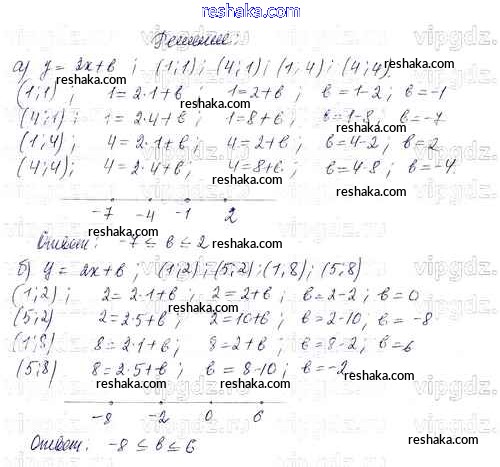 reshaka.ru
Решение:
а) y = 2x+в ; (1;1) ; (4;1) ; (1;4) ; (4;4).
reshaka.ru reshaka.ru
(1;1) ; 1=2·1+в ; 1=2+в ; в=1-2 ; в=-1
(4;1) ; 1=2·4+в ; 1=8+в ; в=1-8 ; в=-7
reshaka.ru reshaka.ru
(1;4) ; 4=2·1+в ; 4=2+в ; в=4-2 ; в=2
(4;4) ; 4=2·4+в ; 4=8+в ; в=4-8 ; в=-4
reshaka.ru reshaka.ru
-7 -4 -1 2
reshaka.ru
Ответ: -7 ≤ в ≤ 2
reshaka.ru
б) y = 2x+в ; (1;2) ; (5;2) ; (1;8) ; (5;8)
reshaka.ru
(1;2) ; 2=2·1+в ; 2=2+в ; в=2-2 ; в=0
(5;2) 2=2·5+в ; 2=10+в ; в=2-10 ; в=-8
reshaka.ru reshaka.ru
(1;8) 8=2·1+в ; 8=2+в ; в=8-2 ; в=6
(5;8) 8=2·5+в ; в=8-10 ; в=-2
reshaka.ru reshaka.ru
-8 -2 0 6
reshaka.ru
Ответ: -8 ≤ в ≤ 6
reshaka.ru
reshaka.ru